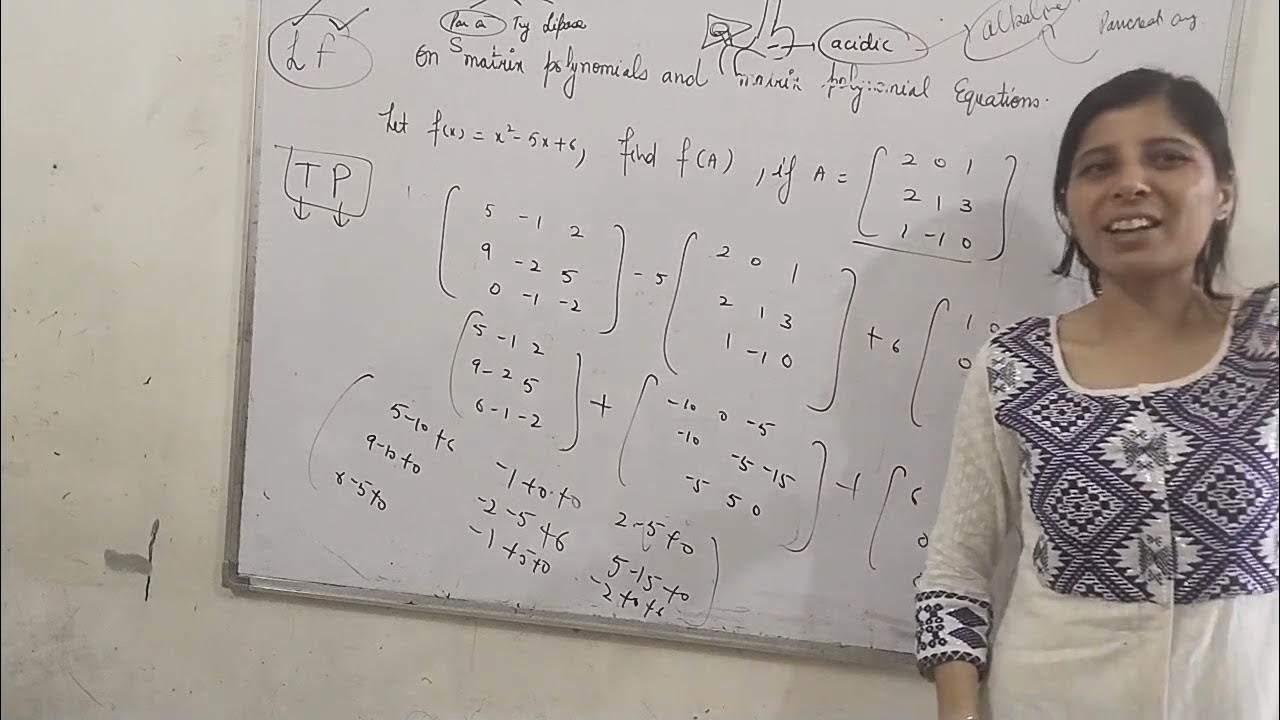 Para Try lipase
acidic alkaline Pancreat
Lf
On matrix polynomials and matrix polynomial Equations.
Let f(x) = x² - 5x + 6, find f(A), if A = [ 2 0 1
2 1 3
1 -1 0 ]
TP
[ 5 -1 2
9 -2 5
0 -1 -2 ] - 5 [ 2 0 1
2 1 3
1 -1 0 ] + 6 [ 1 0
0
[ 5 -1 2
9 -2 5
6 -1 -2 ] + [ -10 0 -5
-10 -5 -15
-5 5 0 ] + [ 6
0
[ 5-10+6 -1+0+0 2-5+0
9-10+0 -2-5+6 5-15+0
-5+0 -1+5+0 -2+0+6 ]